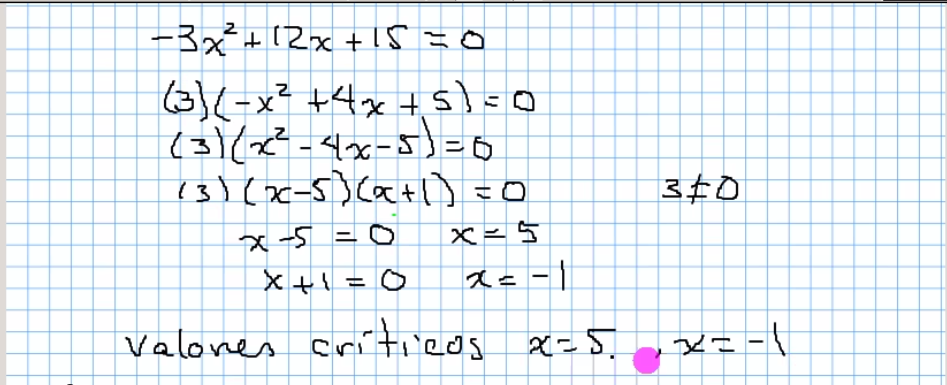 -3x² + 12x + 15 = 0
(3)(-x² + 4x + 5) = 0
(3)(x² - 4x - 5) = 0
(3)(x-5)(x+1) = 0 3≠0
x - 5 = 0 x = 5
x + 1 = 0 x = -1
Valores críticos x = 5. , x = -1